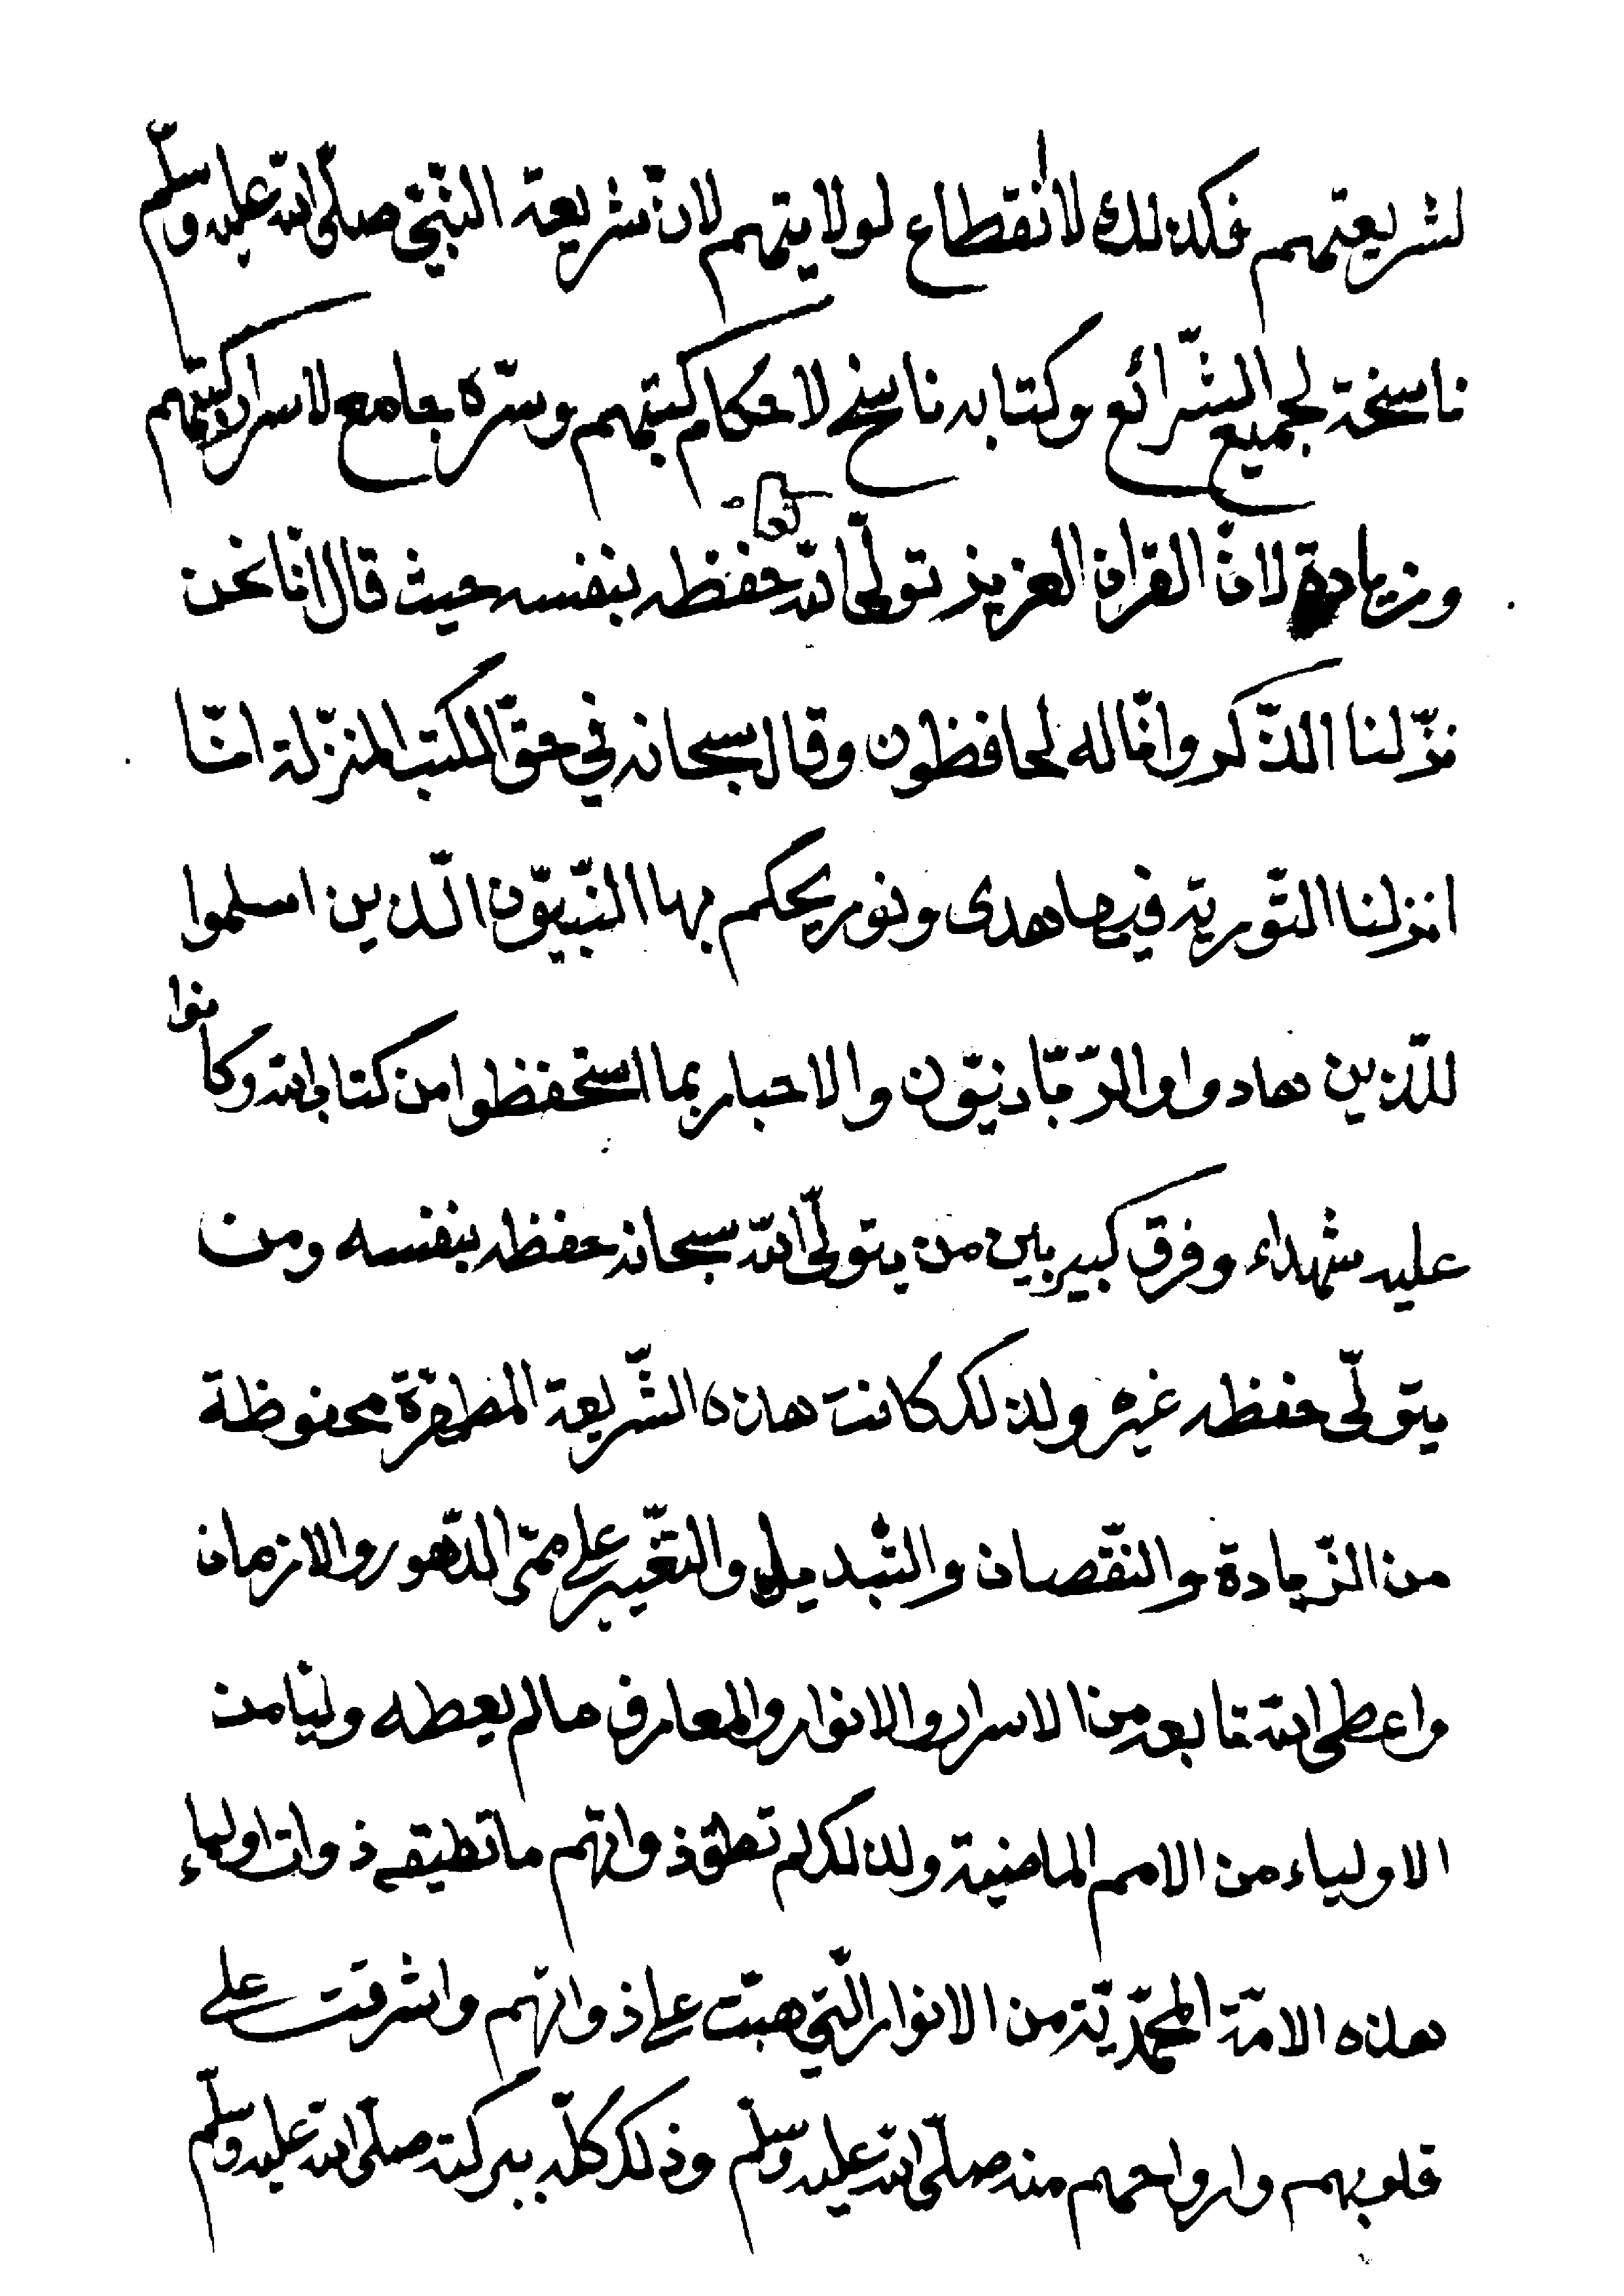 لشريعتهم فكذلك لا انقطاع لولايتهم لانّ شريعة النّبيّ صلّى الله عليه وسلّم
ناسخة لجميع الشّرائع وكتابه ناسخ لاحكام كتبهم وسرّه جامع لاسرار كتبهم
وزيادة لانّ القران العزيز تولّى الله تعا حفظه بنفسه حيث قال انّا نحن
نزّلنا الذّكر وانّا له لحافظون وقال سبحانه في حقّ الكتب المنزّلة انّا
انزلنا التّورية فيها هدى ونور يحكم بها النّبيّون الّذين اسلموا
للّذين هادوا والرّبّانيّون والاحبار بما استحفظوا من كتاب الله وكانوا
عليه شهداء وفرق كبير بين من يتولّى الله سبحانه حفظه بنفسه ومن
يتولّى حفظه غيره ولذلك كانت هذه الشّريعة المطهّرة محفوظة
من الزّيادة والنّقصان والتّبديل والتّغيير على ممرّ الدّهور والازمان
واعطى الله تابعه من الاسرار والانوار والمعارف ما لم يعطه وليّا من
الاولياء من الامم الماضية ولذلك لم تطق ذواتهم ما تطيقه ذوات اولياء
هذه الامّة المحمّديّة من الانوار الّتي هبّت على ذواتهم واشرقت على
قلوبهم وارواحهم منه صلّى الله عليه وسلّم وذلك كلّه ببركته صلّى الله عليه وسلّم